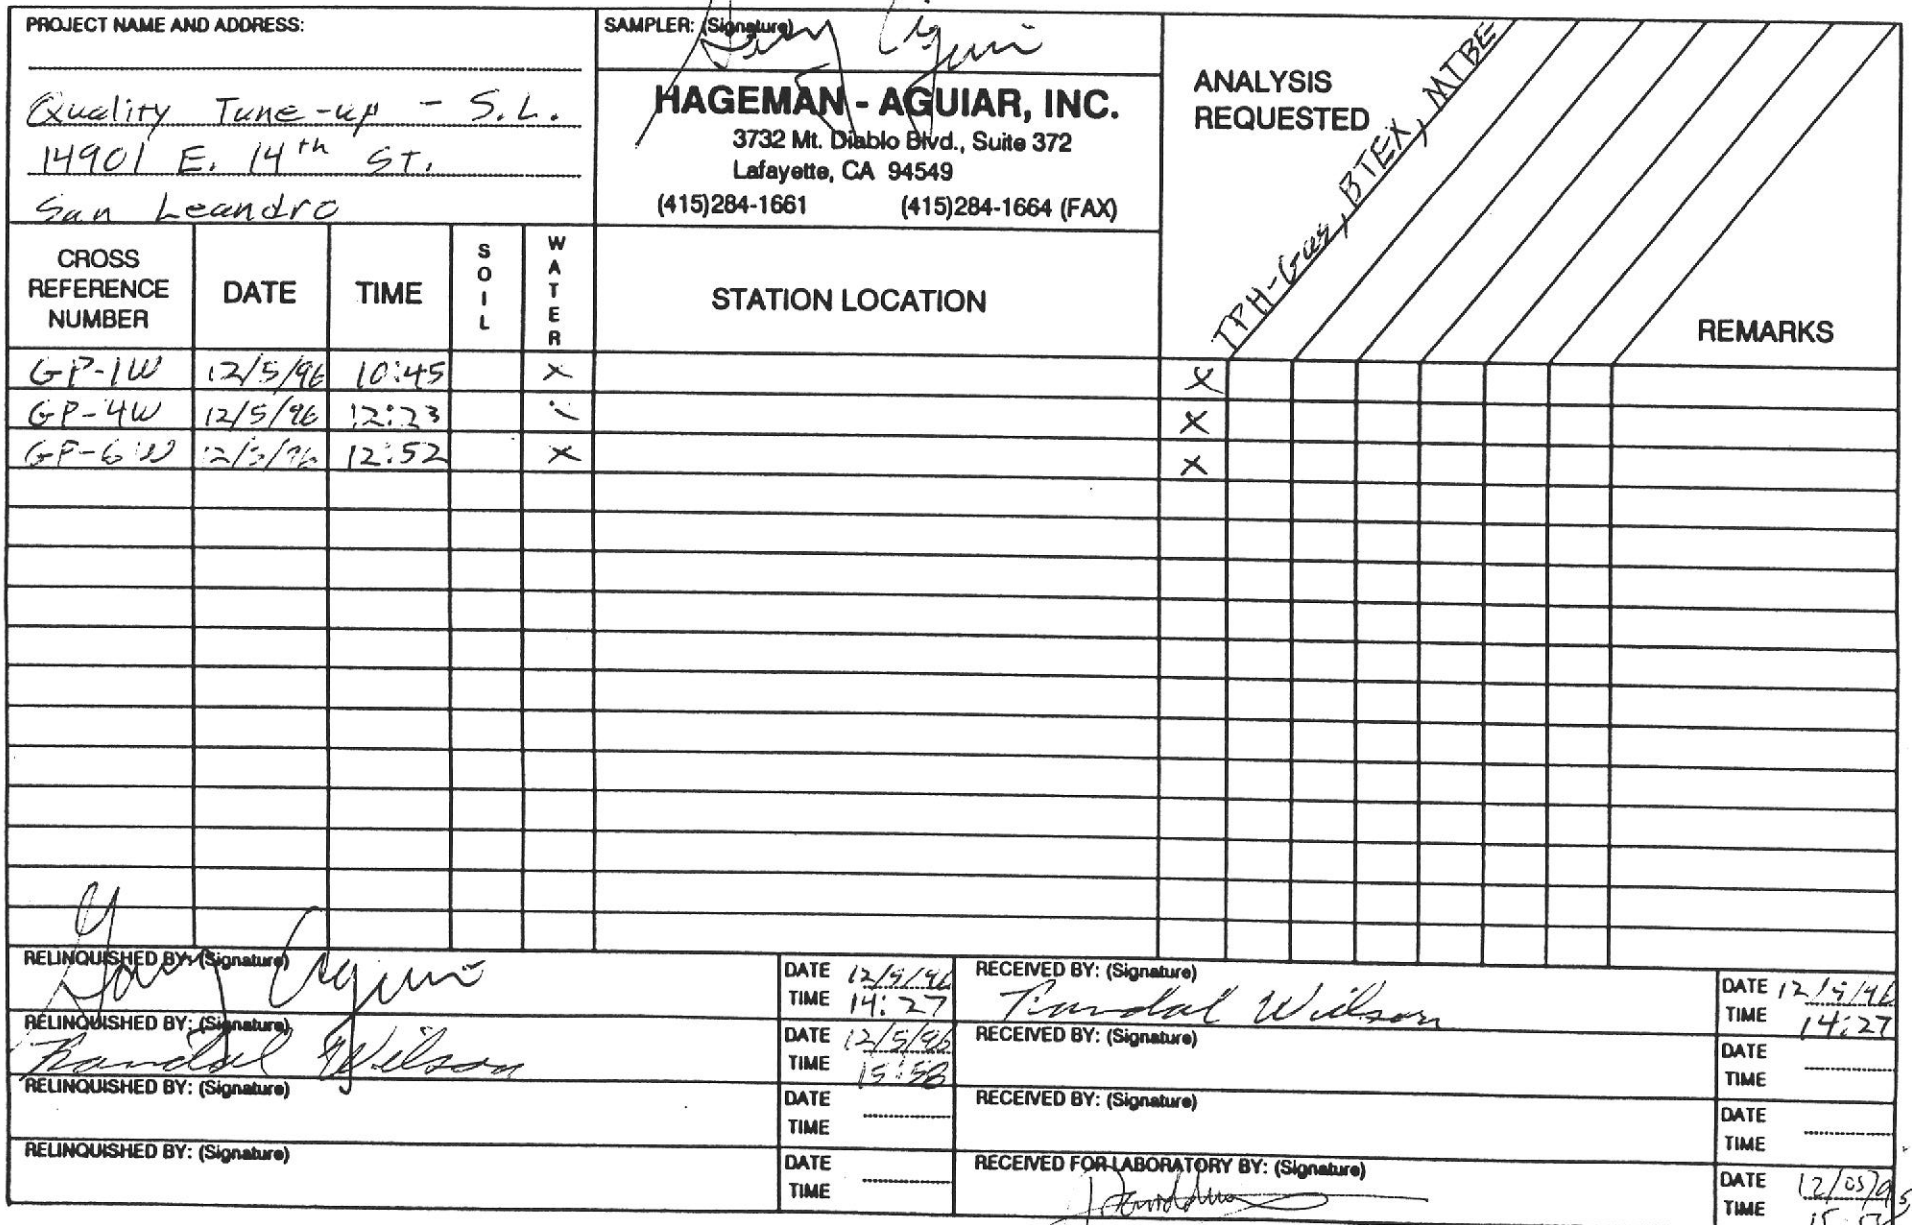 PROJECT NAME AND ADDRESS:
Quality Tune-up - S.L.
14901 E. 14th ST.
San Leandro
SAMPLER: (Signature)
HAGEMAN - AGUIAR, INC.
3732 Mt. Diablo Blvd., Suite 372
Lafayette, CA 94549
(415)284-1661 (415)284-1664 (FAX)
ANALYSIS REQUESTED
TPH-Gas, BTEX, MTBE
REMARKS
CROSS REFERENCE NUMBER DATE TIME SOIL WATER STATION LOCATION
GP-1W 12/5/96 10:45 X X
GP-4W 12/5/96 12:23 X
GP-6W 12:52 X X
RELINQUISHED BY: (Signature) DATE 12/5/96 RECEIVED BY: (Signature) Randal Wilson DATE 12/5/96
TIME 14:27 TIME 14:27
RELINQUISHED BY: (Signature) Randal Wilson DATE 12/5/96 RECEIVED BY: (Signature) DATE
TIME 15:58 TIME
RELINQUISHED BY: (Signature) DATE RECEIVED BY: (Signature) DATE
TIME TIME
RELINQUISHED BY: (Signature) DATE RECEIVED FOR LABORATORY BY: (Signature) DATE
TIME TIME